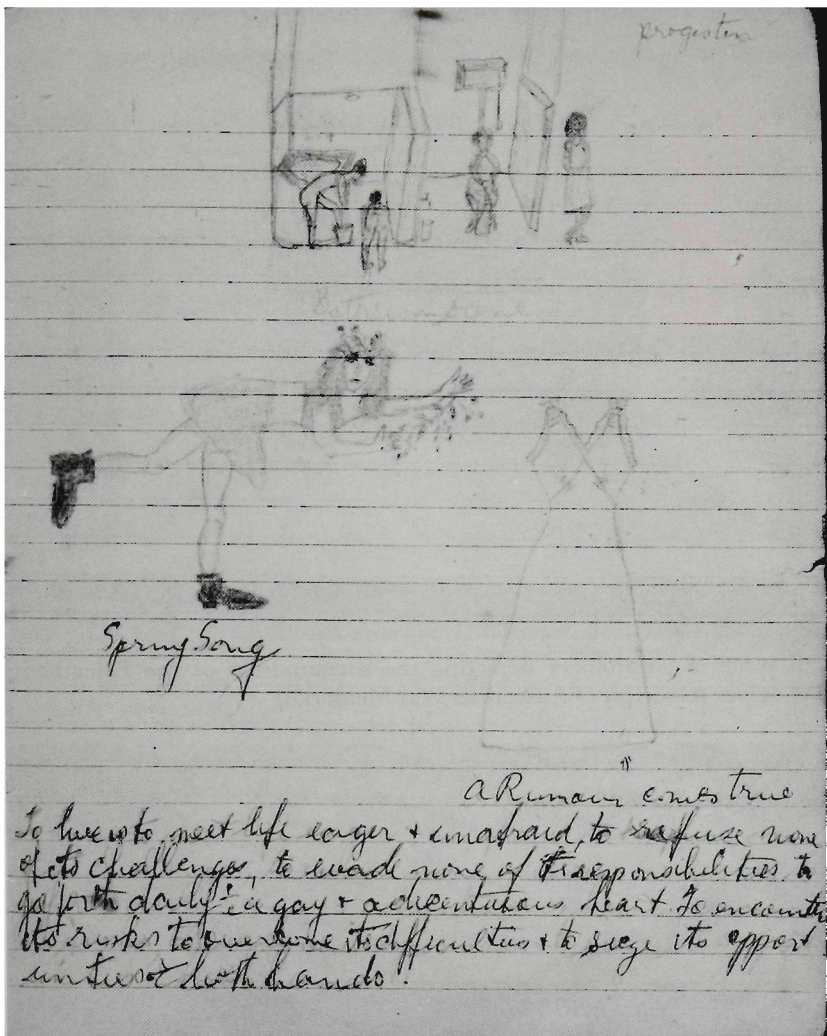 Spring Song
A Rumour comes true
To live is to meet life eager & unafraid, to refuse none
of its challenges, to evade none of its responsibilities to
go forth daily a gay & adventurous heart. To encounter
its risks to overcome its difficulties & to seize its opport
unities both hands.